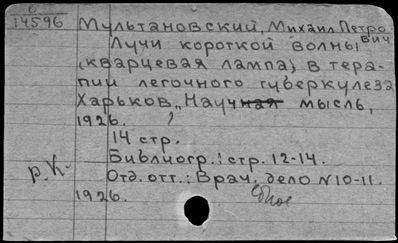 0
14596
Мультановский, Михаил Петро
вич
Лучи короткой волны
(кварцевая лампа) в тера-
пии легочного туберкулеза
Харьков, "Научная мысль,
1926.
14 стр.
Библиогр.: стр. 12-14.
р.К.
Отд. отт.: Врач. дело N10-11.
1926.